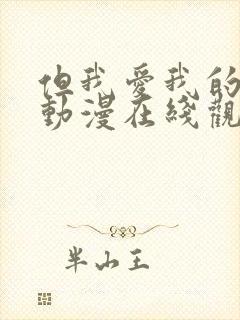 但我愛我的
動漫在綫觀
半山王